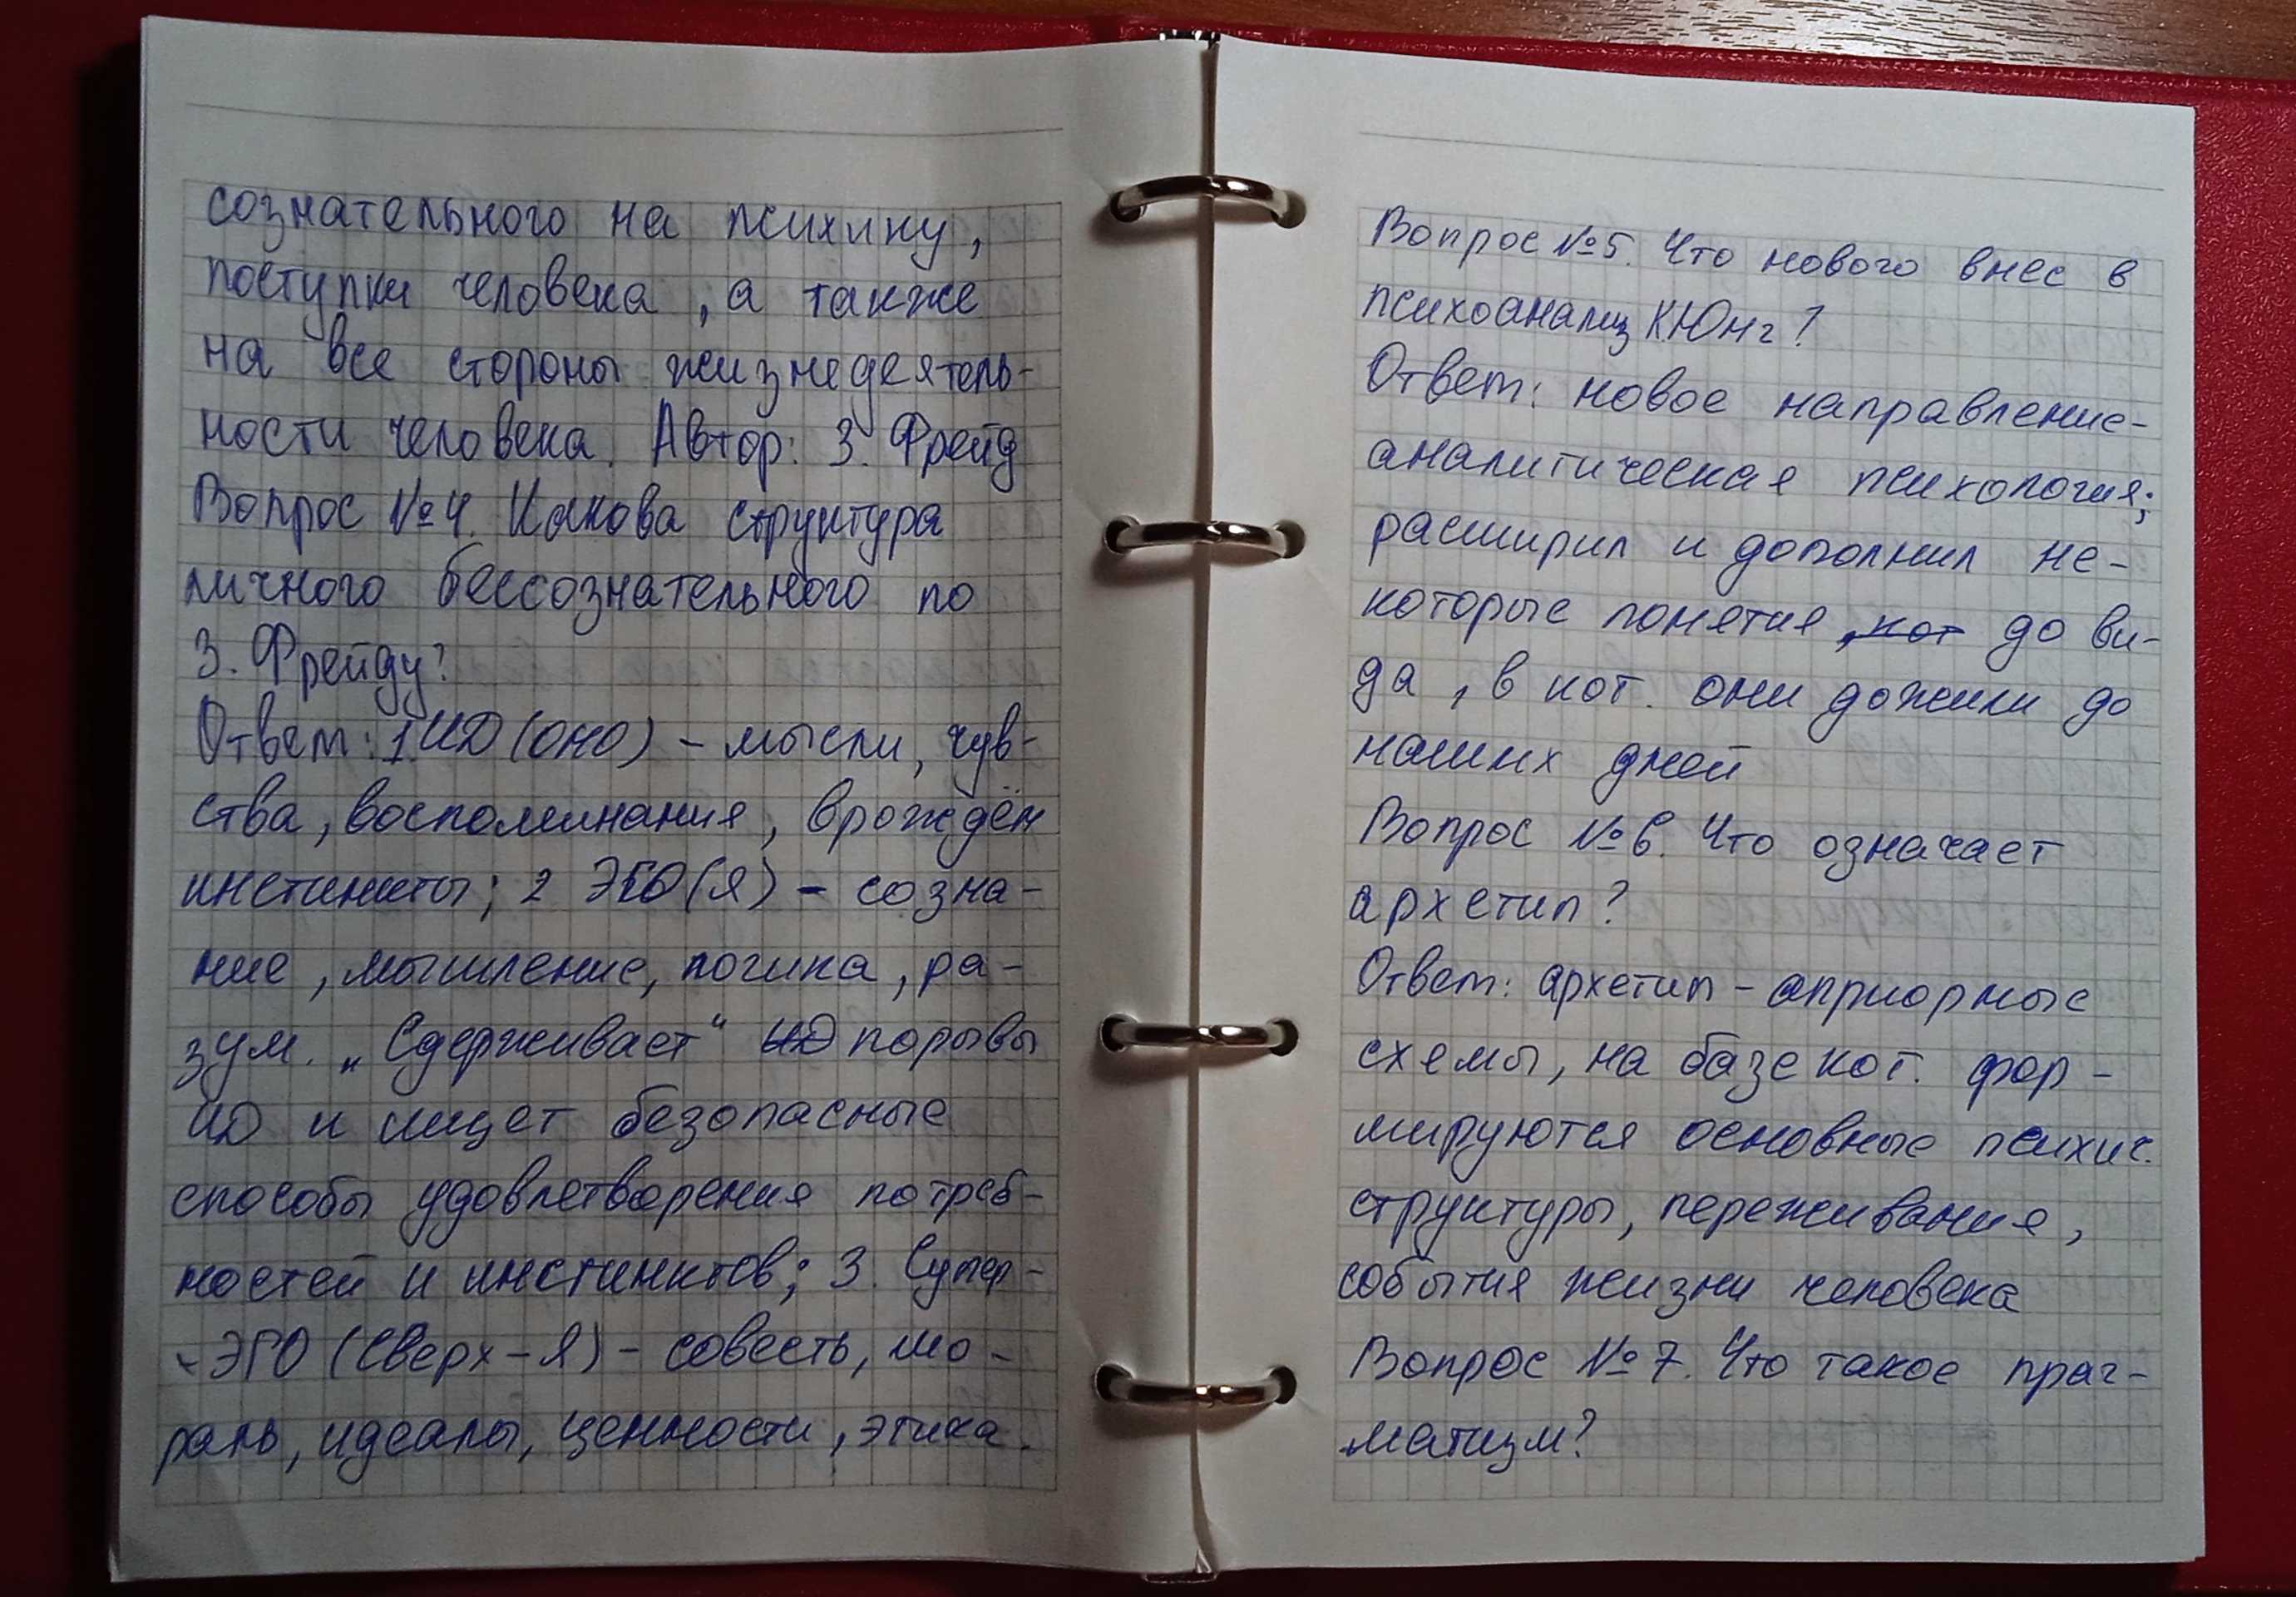 сознательного на психику,
поступки человека, а также
на все стороны жизнедеятель-
ности человека. Автор: З. Фрейд
Вопрос №4. Какова структура
личного бессознательного по
З. Фрейду?
Ответ: 1. ИД (ОНО) - мысли, чув-
ства, воспоминания, врождён
инстинкты; 2 ЭГО (Я) - созна-
ние, мышление, логика, ра-
зум. „Сдерживает“ ИД порывы
ИД и ищет безопасные
способы удовлетворения потреб-
ностей и инстинктов; 3. Супер-
-ЭГО (Сверх-Я) - совесть, мо-
раль, идеалы, ценности, этика.
Вопрос №5. Что нового внес в
психоанализ К.Юнг?
Ответ: новое направление-
аналитическая психология;
расширил и дополнил не-
которые понятия, кот до ви-
да, в кот. они дожили до
наших дней
Вопрос №6. Что означает
архетип?
Ответ: архетип - априорные
схемы, на базе кот. фор-
мируются основные психич.
структуры, переживания,
события жизни человека
Вопрос №7. Что такое праг-
матизм?